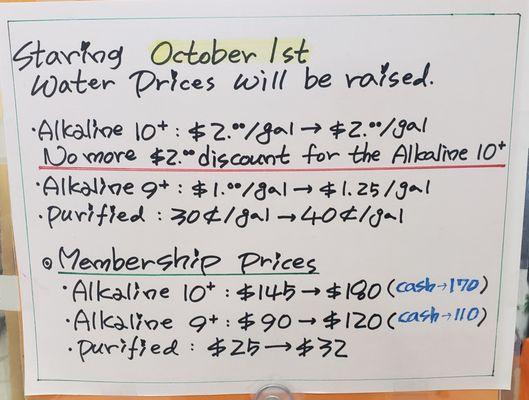 Staring October 1st
Water Prices will be raised.
・Alkaline 10⁺ : $2.⁰⁰/gal → $2.⁰⁰/gal
No more $2.⁰⁰ discount for the Alkaline 10⁺
・Alkaline 9⁺ : $1.⁰⁰/gal → $1.25/gal
・Purified : 30¢/gal → 40¢/gal
◎ Membership Prices
・Alkaline 10⁺ : $145 → $180 (cash→170)
・Alkaline 9⁺ : $90 → $120 (cash→110)
・Purified : $25 → $32